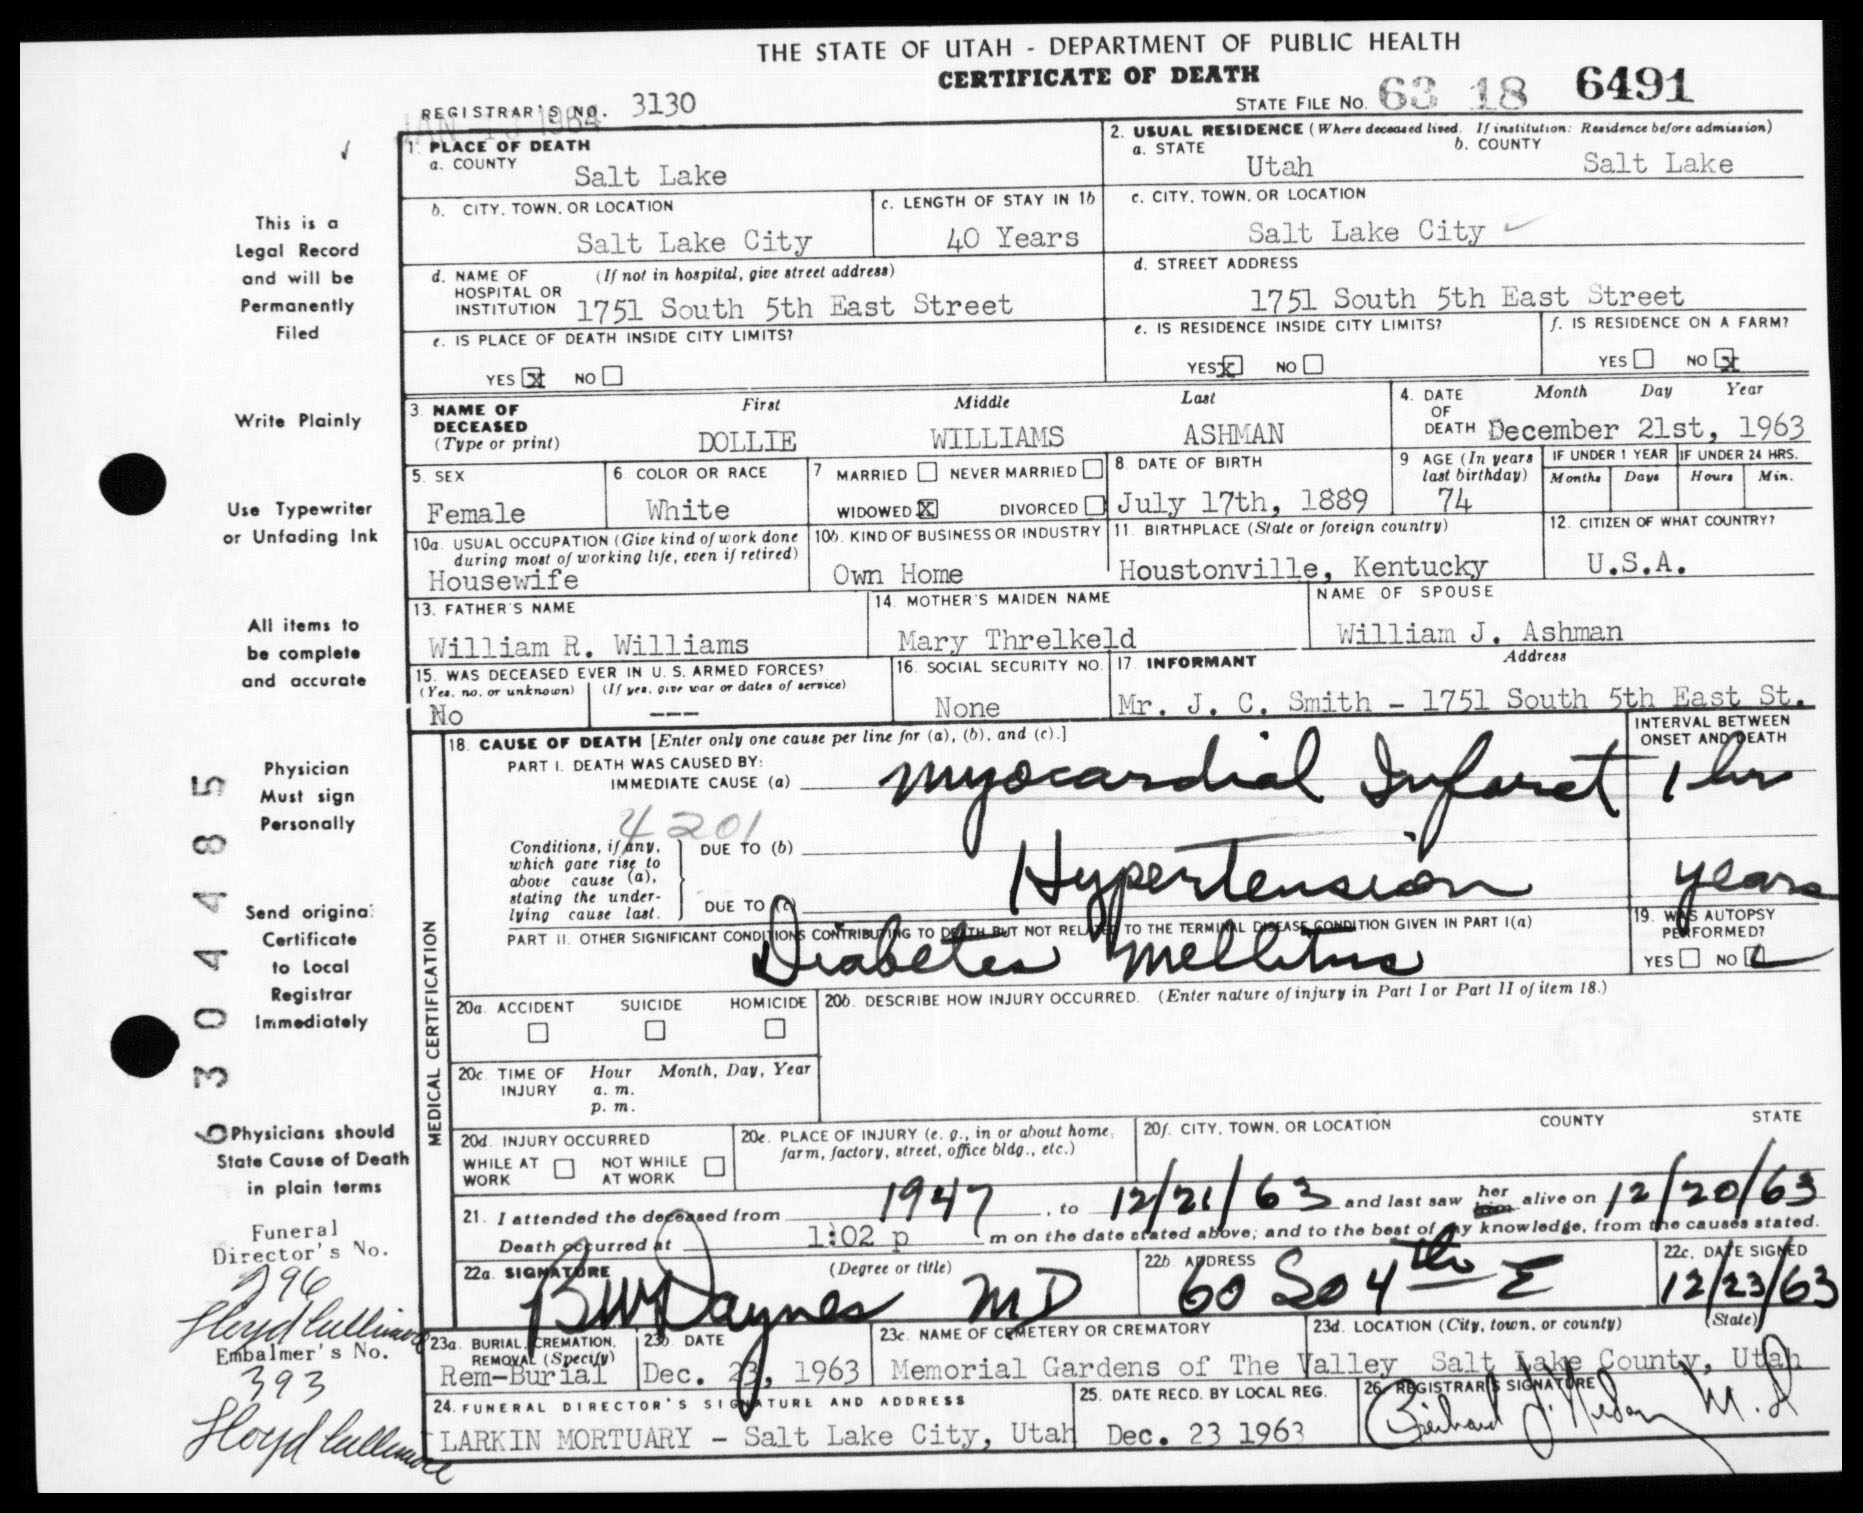 THE STATE OF UTAH - DEPARTMENT OF PUBLIC HEALTH
CERTIFICATE OF DEATH
REGISTRAR'S NO. 3130
STATE FILE NO. 63 18 6491
JAN 10 1964
1. PLACE OF DEATH
a. COUNTY
Salt Lake
2. USUAL RESIDENCE (Where deceased lived. If institution: Residence before admission)
a. STATE
Utah
b. COUNTY
Salt Lake
b. CITY, TOWN, OR LOCATION
Salt Lake City
c. LENGTH OF STAY IN 1b
40 Years
c. CITY, TOWN, OR LOCATION
Salt Lake City
d. NAME OF HOSPITAL OR INSTITUTION
(If not in hospital, give street address)
1751 South 5th East Street
d. STREET ADDRESS
1751 South 5th East Street
e. IS PLACE OF DEATH INSIDE CITY LIMITS?
YES x NO
e. IS RESIDENCE INSIDE CITY LIMITS?
YES x NO
f. IS RESIDENCE ON A FARM?
YES NO x
3. NAME OF DECEASED (Type or print)
First Middle Last
DOLLIE WILLIAMS ASHMAN
4. DATE OF DEATH
Month Day Year
December 21st, 1963
5. SEX
Female
6 COLOR OR RACE
White
7 MARRIED NEVER MARRIED
WIDOWED X DIVORCED
8. DATE OF BIRTH
July 17th, 1889
9 AGE (In years last birthday)
74
IF UNDER 1 YEAR
Months Days
IF UNDER 24 HRS.
Hours Min.
10a. USUAL OCCUPATION (Give kind of work done during most of working life, even if retired)
Housewife
10b. KIND OF BUSINESS OR INDUSTRY
Own Home
11. BIRTHPLACE (State or foreign country)
Houstonville, Kentucky
12. CITIZEN OF WHAT COUNTRY?
U.S.A.
13. FATHER'S NAME
William R. Williams
14. MOTHER'S MAIDEN NAME
Mary Threlkeld
NAME OF SPOUSE
William J. Ashman
15. WAS DECEASED EVER IN U. S. ARMED FORCES?
(Yes, no, or unknown) (If yes, give war or dates of service)
No ---
16. SOCIAL SECURITY NO.
None
17. INFORMANT Address
Mr. J. C. Smith - 1751 South 5th East St.
MEDICAL CERTIFICATION
18. CAUSE OF DEATH [Enter only one cause per line for (a), (b), and (c).]
INTERVAL BETWEEN ONSET AND DEATH
PART I. DEATH WAS CAUSED BY:
IMMEDIATE CAUSE (a) Myocardial Infarct 1 hr
4201
Conditions, if any, which gave rise to above cause (a), stating the underlying cause last.
DUE TO (b)
Hypertension years
DUE TO (c)
PART II. OTHER SIGNIFICANT CONDITIONS CONTRIBUTING TO DEATH BUT NOT RELATED TO THE TERMINAL DISEASE CONDITION GIVEN IN PART I(a)
Diabetes Mellitus
19. WAS AUTOPSY PERFORMED?
YES NO
20a. ACCIDENT SUICIDE HOMICIDE
20b. DESCRIBE HOW INJURY OCCURRED. (Enter nature of injury in Part I or Part II of item 18.)
20c. TIME OF INJURY
Hour Month, Day, Year
a. m.
p. m.
20d. INJURY OCCURRED
WHILE AT WORK NOT WHILE AT WORK
20e. PLACE OF INJURY (e. g., in or about home, farm, factory, street, office bldg., etc.)
20f. CITY, TOWN, OR LOCATION COUNTY STATE
21. I attended the deceased from 1947, to 12/21/63 and last saw her him alive on 12/20/63
Death occurred at 1:02 p m on the date stated above; and to the best of my knowledge, from the causes stated.
22a. SIGNATURE (Degree or title)
BW Daynes MD
22b ADDRESS
60 So 4th E
22c. DATE SIGNED
12/23/63
23a. BURIAL, CREMATION, REMOVAL (Specify)
Rem-Burial
23b. DATE
Dec. 23, 1963
23c. NAME OF CEMETERY OR CREMATORY
Memorial Gardens of The Valley
23d. LOCATION (City, town, or county) (State)
Salt Lake County, Utah
24. FUNERAL DIRECTOR'S SIGNATURE AND ADDRESS
LARKIN MORTUARY - Salt Lake City, Utah
25. DATE RECD. BY LOCAL REG.
Dec. 23 1963
26. REGISTRAR'S SIGNATURE
M.D
This is a
Legal Record
and will be
Permanently
Filed
Write Plainly
Use Typewriter
or Unfading Ink
All items to
be complete
and accurate
Physician
Must sign
Personally
Send original
Certificate
to Local
Registrar
Immediately
Physicians should
State Cause of Death
in plain terms
6304485
Funeral
Director's No.
796
Lloyd Cullimore
Embalmer's No.
393
Lloyd Cullimore